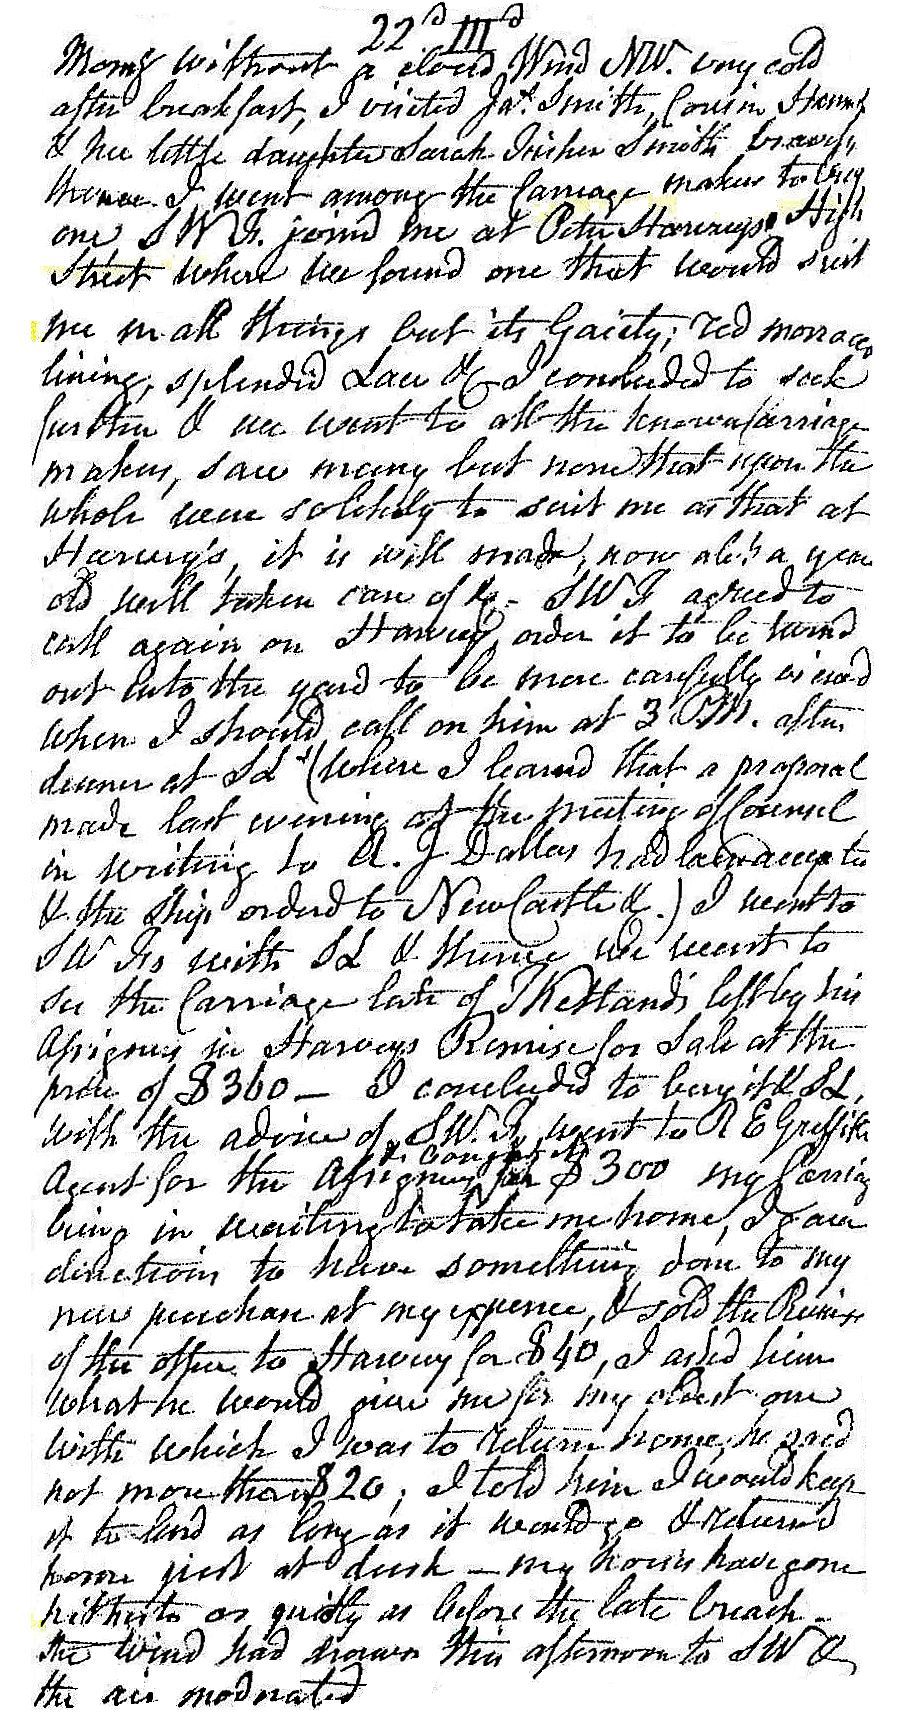 22d IIId
Morng without a cloud Wind NW. very cold
after breakfast, I visited Jas. Smith, Cousin Hannh
& her little daughter Sarah Fisher Smith bravely
thence I went among the Carriage makers to buy
one SWF. joined me at Peter Harveys High
Street where we found one that would suit
me in all things but its Gaiety; red morroco
lining, splendid Lace &c I concluded to seek
further & we went to all the known Carriage
makers, saw many but none that upon the
whole were so likely to suit me as that at
Harvey's, it is well made, now abt. a year
old well taken care of &c - SWF agreed to
call again on Harvey, order it to be turnd
out into the yard to be more carefully viewd
when I should call on him at 3 PM. after
dinner at SLs (where I learnd that a proposal
made last evening at the meeting of Counsel
in writing to A. J Dallas had been accepted
& the Ship orderd to New Castle &c.) I went to
SWFs with SL & thence we went to
see the Carriage late of JKetland's left by his
Assignees in Harveys Remise for Sale at the
price of $360 — I concluded to buy it & SL,
with the advice of SW.F, went to R E Griffith
Agent for the Assignees, & bought it for $300 my Carriage
being in waiting to take me home, I gave
directions to have something done to my
new purchase at my expence, & sold the Remise
of the other to Harvey for $40, I asked him
what he would give me for my oldest one
with which I was to return home, he said
not more than $20; I told him I would keep
it to lend as long as it would go & returnd
home just at dusk — my horses have gone
hitherto as quietly as before the late breach -
the Wind had drawn this afternoon to SW &
the air moderated